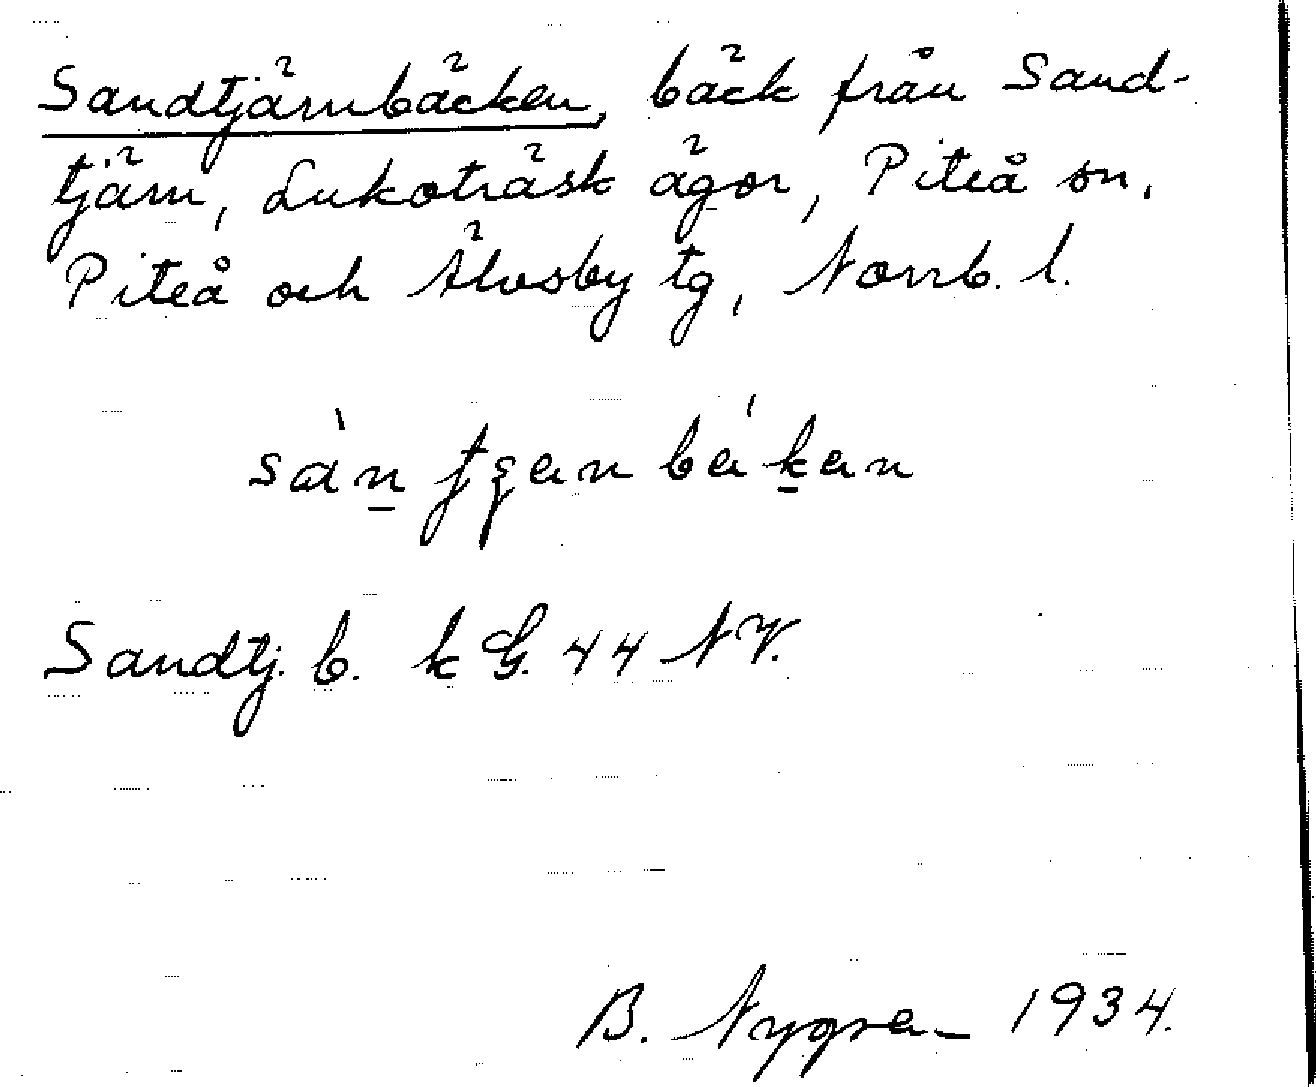 Sandtjärnbäcken, bäck från Sand-
tjärn, Lukoträsk ägor, Piteå sn,
Piteå och Älvsby tg, Norrb. l.
Sandtj. b. k G. 44 NV.
B. Nygren 1934.